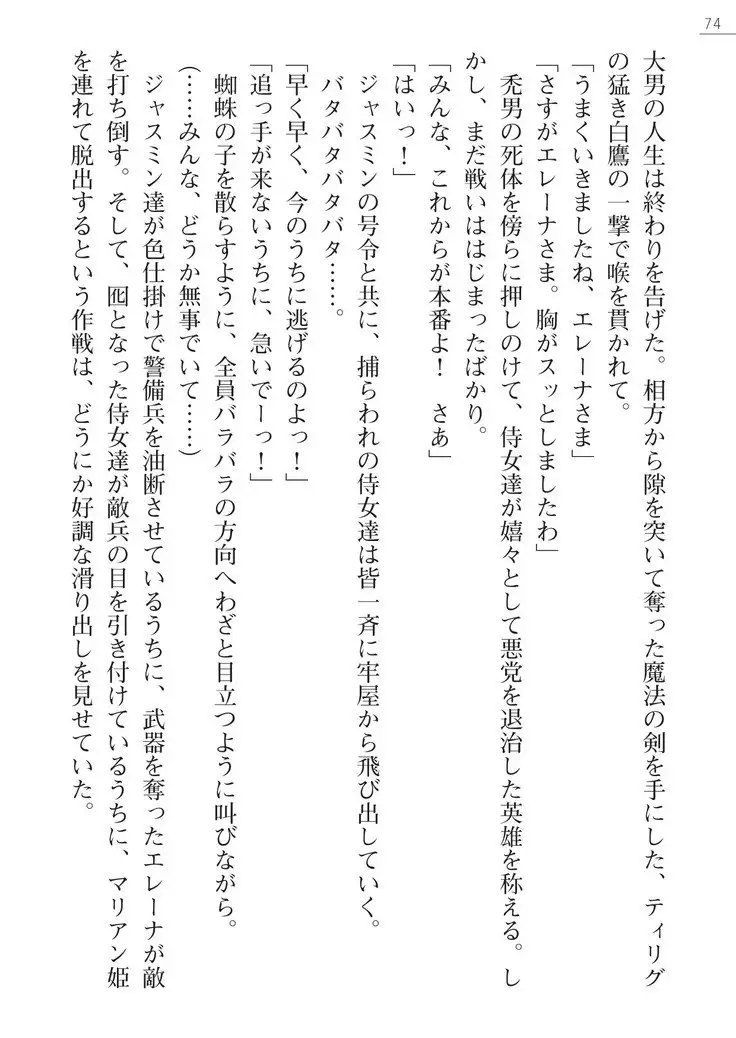 74
大男の人生は終わりを告げた。相方から隙を突いて奪った魔法の剣を手にした、ティリグ
の猛き白鷹の一撃で喉を貫かれて。
「うまくいきましたね、エレーナさま」
「さすがエレーナさま。胸がスッとしましたわ」
禿男の死体を傍らに押しのけて、侍女達が嬉々として悪党を退治した英雄を称える。し
かし、まだ戦いははじまったばかり。
「みんな、これからが本番よ！　さあ」
「はいっ！」
ジャスミンの号令と共に、捕らわれの侍女達は皆一斉に牢屋から飛び出していく。
バタバタバタバタ……。
「早く早く、今のうちに逃げるのよっ！」
「追っ手が来ないうちに、急いでーっ！」
蜘蛛の子を散らすように、全員バラバラの方向へわざと目立つように叫びながら。
(……みんな、どうか無事でいて……)
ジャスミン達が色仕掛けで警備兵を油断させているうちに、武器を奪ったエレーナが敵
を打ち倒す。そして、囮となった侍女達が敵兵の目を引き付けているうちに、マリアン姫
を連れて脱出するという作戦は、どうにか好調な滑り出しを見せていた。